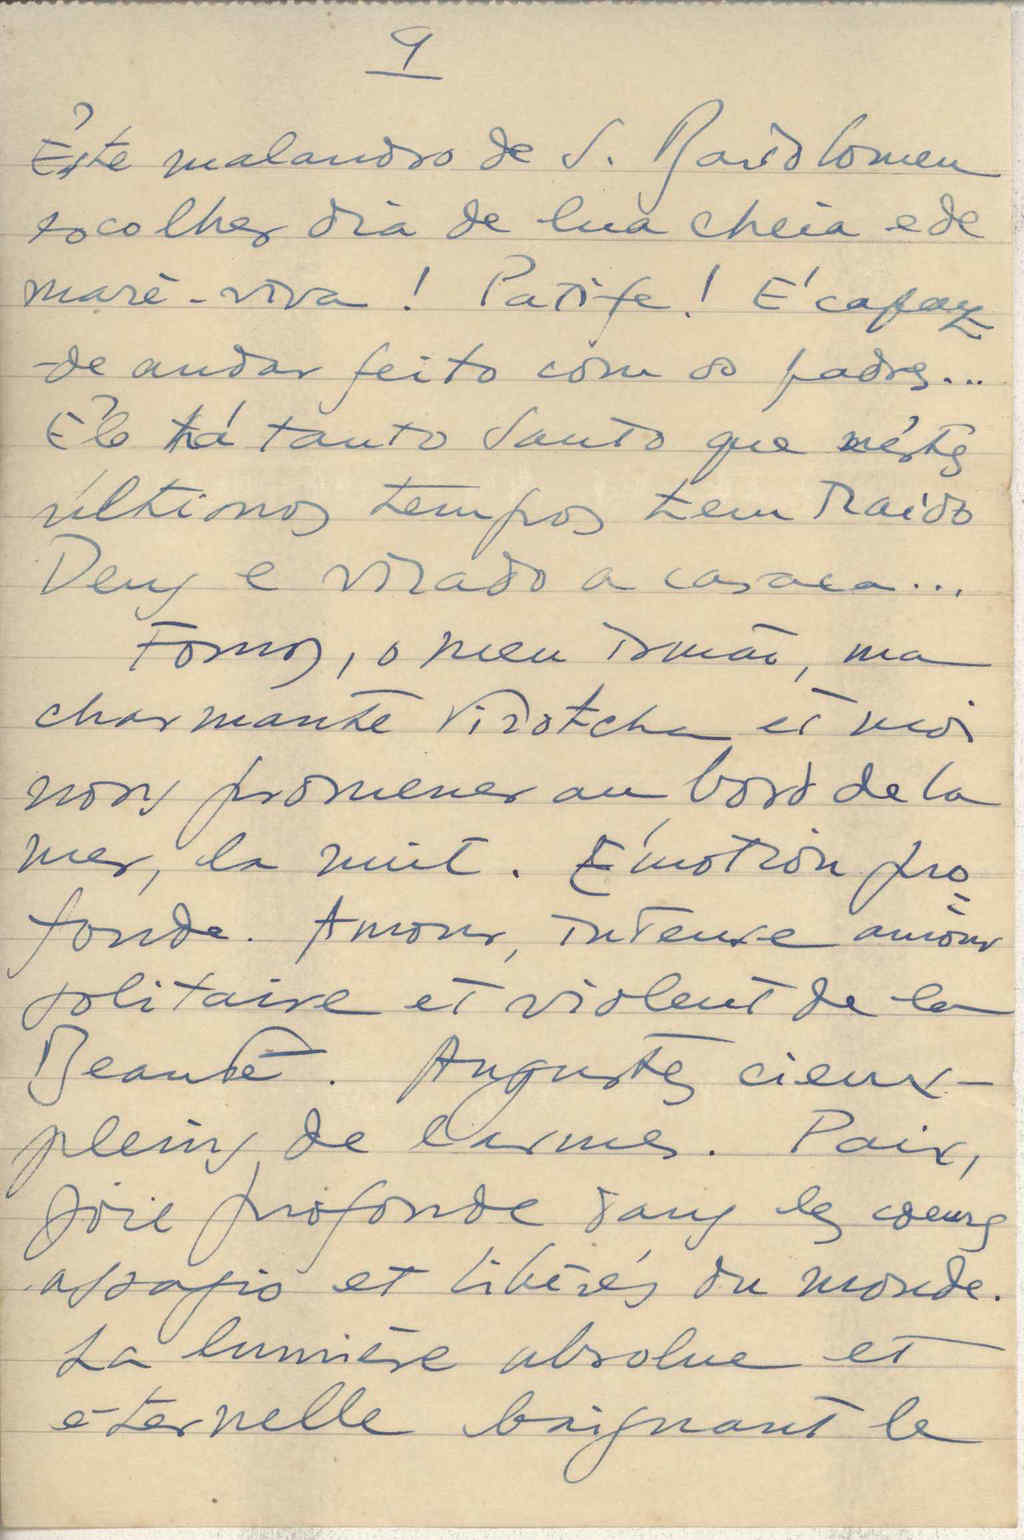 9
Êste malandro de S. Bartolomeu
escolher dia de lua cheia e de
maré-viva! Patife! É capaz
de andar feito com os padres...
Êle há tanto Santo que nêstes
últimos tempos tem traido
Deus e virado a casaca...
Fomos, o meu irmão, ma
charmante Virotcha et moi
nous promener au bord de la
mer, la nuit. Émotion pro=
fonde. Amour, intense amour
solitaire et violent de la
Beauté. Augustes cieux
pleins de larmes. Paix,
joie profonde dans les coeurs
assagis et libérés du monde.
La lumière absolue et
éternelle baignant le